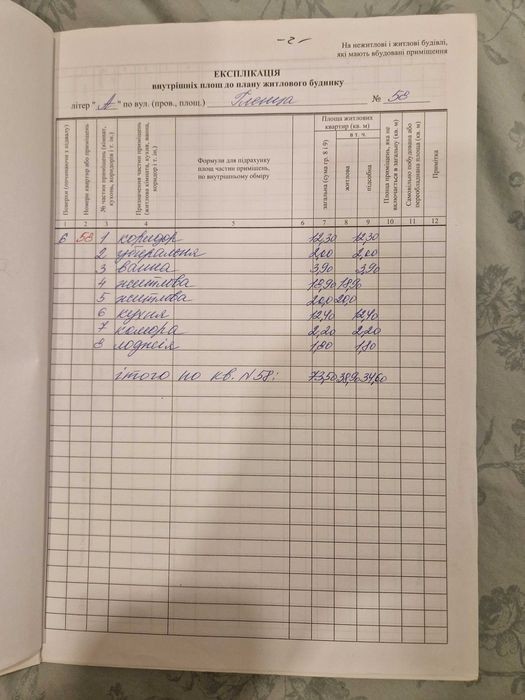 -2-
На нежитлові і житлові будівлі,
які мають вбудовані приміщення
ЕКСПЛІКАЦІЯ
внутрішніх площ до плану житлового будинку
літер "А" по вул. (пров., площ.) № 58
Поверхи (починаючи з підвалу)
Номери квартир або приміщень
№ частин приміщень (кімнат, кухонь, коридорів і т. ін.)
Призначення частин приміщень (житлова кімната, кухня, ванна, коридор і т. ін.)
Формули для підрахунку
площ частин приміщень,
по внутрішньому обміру
Площа житлових
квартир (кв. м)
загальна (сума гр. 8 і 9)
в т. ч.
житлова
підсобна
Площа приміщень, яка не включається в загальну (кв. м)
Самовільно побудована або переобладнана площа (кв. м)
Примітка
1 2 3 4 5 6 7 8 9 10 11 12
6 58 1 коридор 12,30 12,30
2 убиральня 2,00 2,00
3 ванна 3,90 3,90
4 житлова 18,90 18,90
5 житлова 20,0 20,0
6 кухня 12,40 12,40
7 комора 2,20 2,20
8 лоджія 1,80 1,80
ітого по кв. N58: 73,50 38,90 34,60